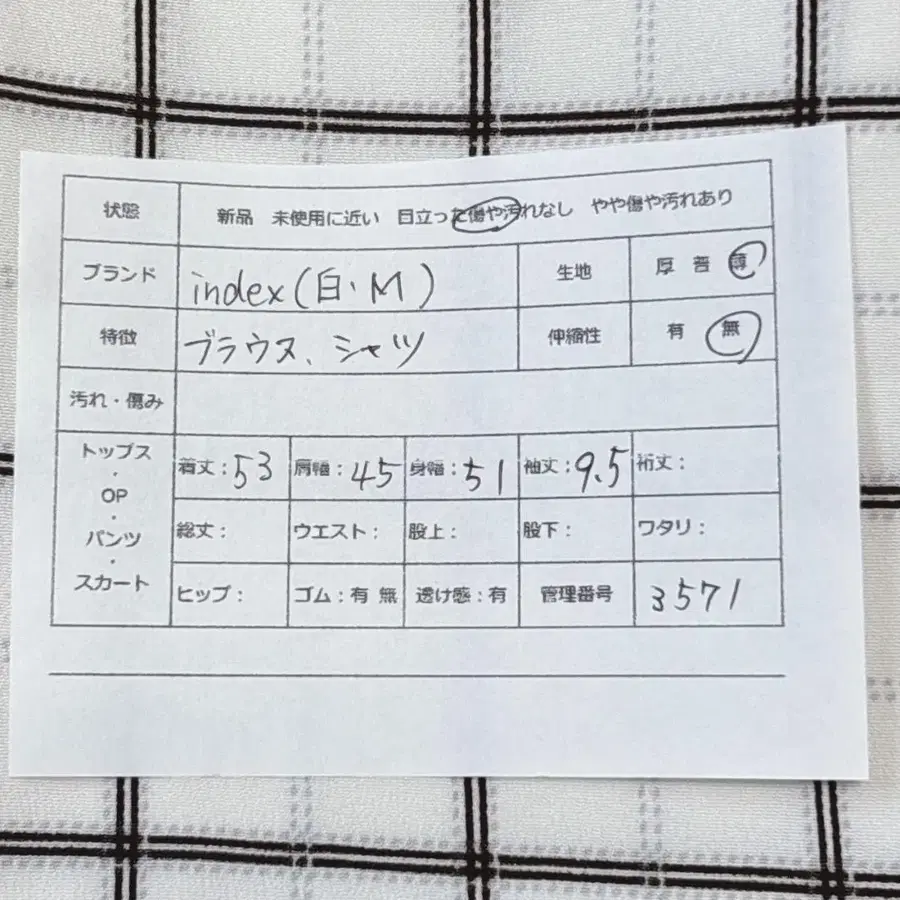 状態 新品 未使用に近い 目立った傷や汚れなし やや傷や汚れあり
ブランド index(白・M) 生地 厚 普 薄
特徴 ブラウス、シャツ 伸縮性 有 無
汚れ・傷み
トップス・OP・パンツ・スカート
着丈:53 肩幅:45 身幅:51 袖丈:9.5 裄丈:
総丈: ウエスト: 股上: 股下: ワタリ:
ヒップ: ゴム:有 無 透け感:有 管理番号 3571